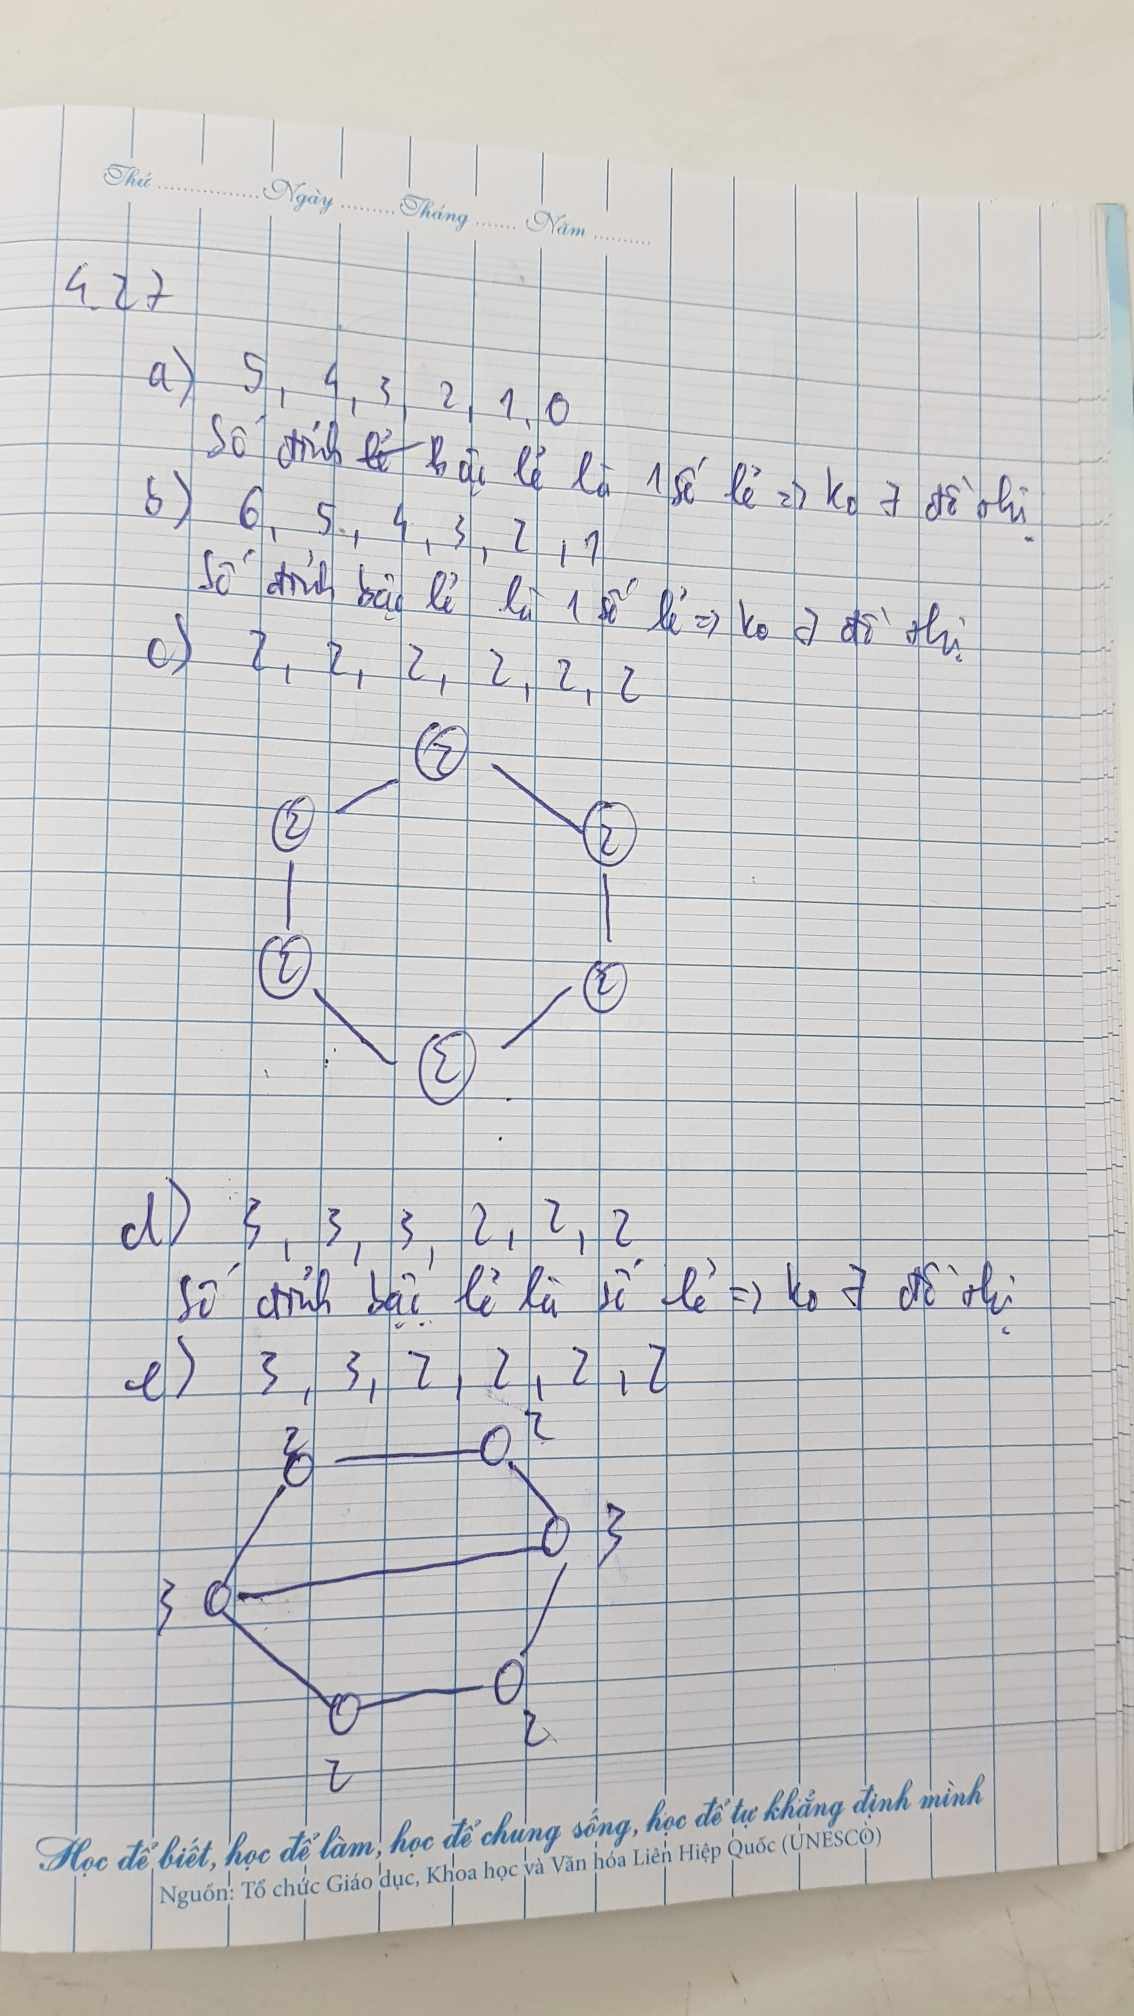 Thứ ............... Ngày ......... Tháng ....... Năm ..........
4.27
a) 5, 4, 3, 2, 1, 0
Số đỉnh lẻ bậc lẻ là 1 số lẻ => ko ∃ đồ thị
b) 6, 5, 4, 3, 2, 1
Số đỉnh bậc lẻ là 1 số lẻ => ko ∃ đồ thị
c) 2, 2, 2, 2, 2, 2
2
2
2
2
2
2
d) 3, 3, 3, 2, 2, 2
Số đỉnh bậc lẻ là số lẻ => ko ∃ đồ thị
e) 3, 3, 2, 2, 2, 2
2
2
3
3
2
2
Học để biết, học để làm, học để chung sống, học để tự khẳng định mình
Nguồn: Tổ chức Giáo dục, Khoa học và Văn hóa Liên Hiệp Quốc (UNESCO)